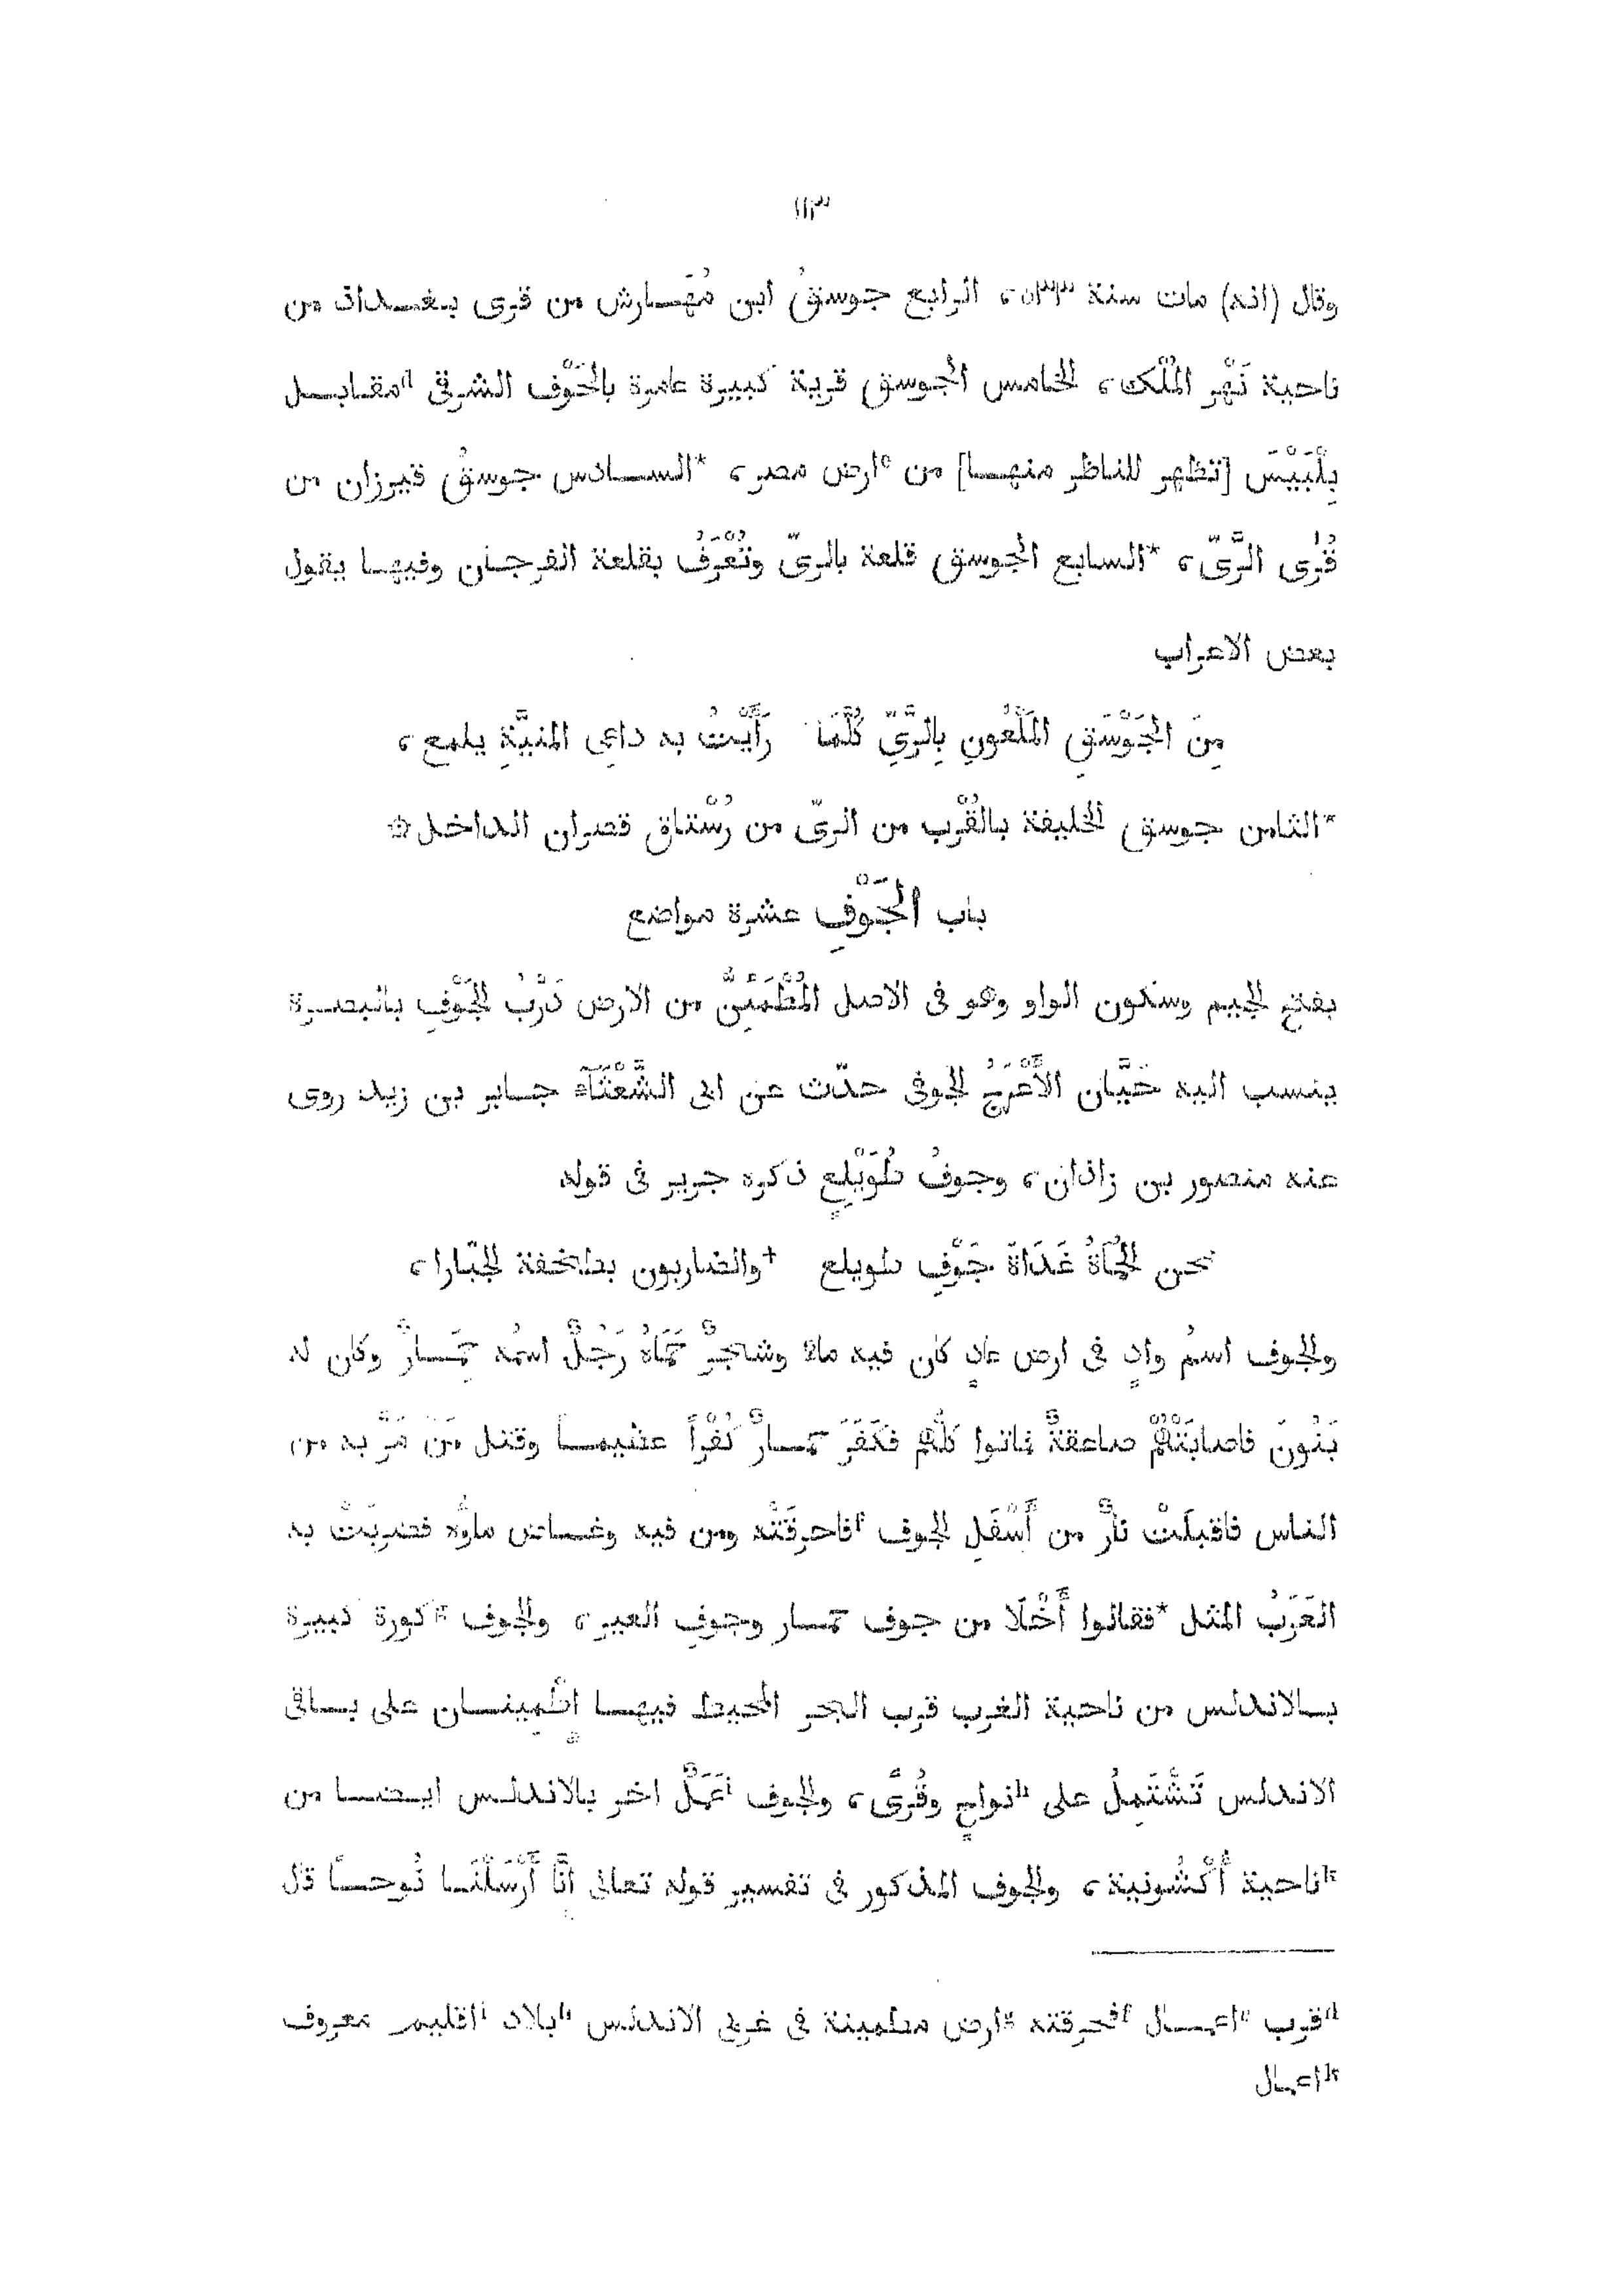 ١١٣
وقال (انه) مات سنة ٥٣٣، الرابع جوسقُ ابن مُهَارش من قرى بغداد من
ناحية نَهْر المُلْك، الخامس الجوسق قرية كبيرة عامرة بالحَوْف الشرقى مقابل
بِلْبَيْسَ [تظهر للناظر منها] من ارض مصر، *السادس جوسقُ قيرزان من
قُرَى الرَّىّ، *السابع الجوسق قلعة بالرىّ وتُعْرَفُ بقلعة الفرجان وفيها يقول
بعض الاعراب
مِنَ الجَوْسَقِ المَلْعُونِ بِالرَّىِّ كُلَّمَا رَأَيْتُ به داعى المنيَّةِ يلمع،
*الثامن جوسق الخليفة بالقُرْب من الرىّ من رُسْتاق قصران الداخل۞
باب الجَوْفِ عشرة مواضع
بفتح الجيم وسكون الواو وهو فى الاصل المُطْمَئِنُّ من الارض دَرْبُ الجَوْفِ بالبصرة
ينسب اليه حَيَّان الأَعْرَجُ الجوفى حدّث عن ابى الشَّعْثَآء جابر بن زيد روى
عنه منصور بن زاذان، وجوفُ طُوَيْلِعٍ ذكره جرير فى قوله
نحن الحُمَاةُ غَدَاةَ جَوْفِ طويلع †والضاربون بطخفة الجبّارا،
والجوف اسمُ وادٍ فى ارض عادٍ كان فيه ماء وشجرٌ حَمَاهُ رَجُلٌ اسمُه حِمَارٌ وكان له
بَنُونَ فاصابَتْهُم صاعقةٌ فماتوا كلُّهم فكَفَرَ حمارٌ كُفْرًا عظيما وقتل مَنْ مَرَّ به من
الناس فاقبلَتْ نارٌ من أَسْفَلِ الجوف فاحرقَتْه ومن فيه وغاض ماؤُه فضربَتْ به
العَرَبُ المثل *فقالوا أَخْلَا من جوف حمار وجوفِ العير، والجوف كورة كبيرة
بالاندلس من ناحية الغرب قرب البحر المحيط فيها اِطْمِينان على باقى
الاندلس تَشْتَمِلُ على نواحٍ وقُرًى، والجوف عَمَلٌ اخر بالاندلس ايضا من
ناحية أُكْشُونية، والجوف المذكور فى تفسير قوله تعالى اِنَّا أَرْسَلْنَا نُوحًا قال
قرب اعمال فحرقته ارض مطمينة فى غربى الاندلس بلاد اقليم معروف
اعمال